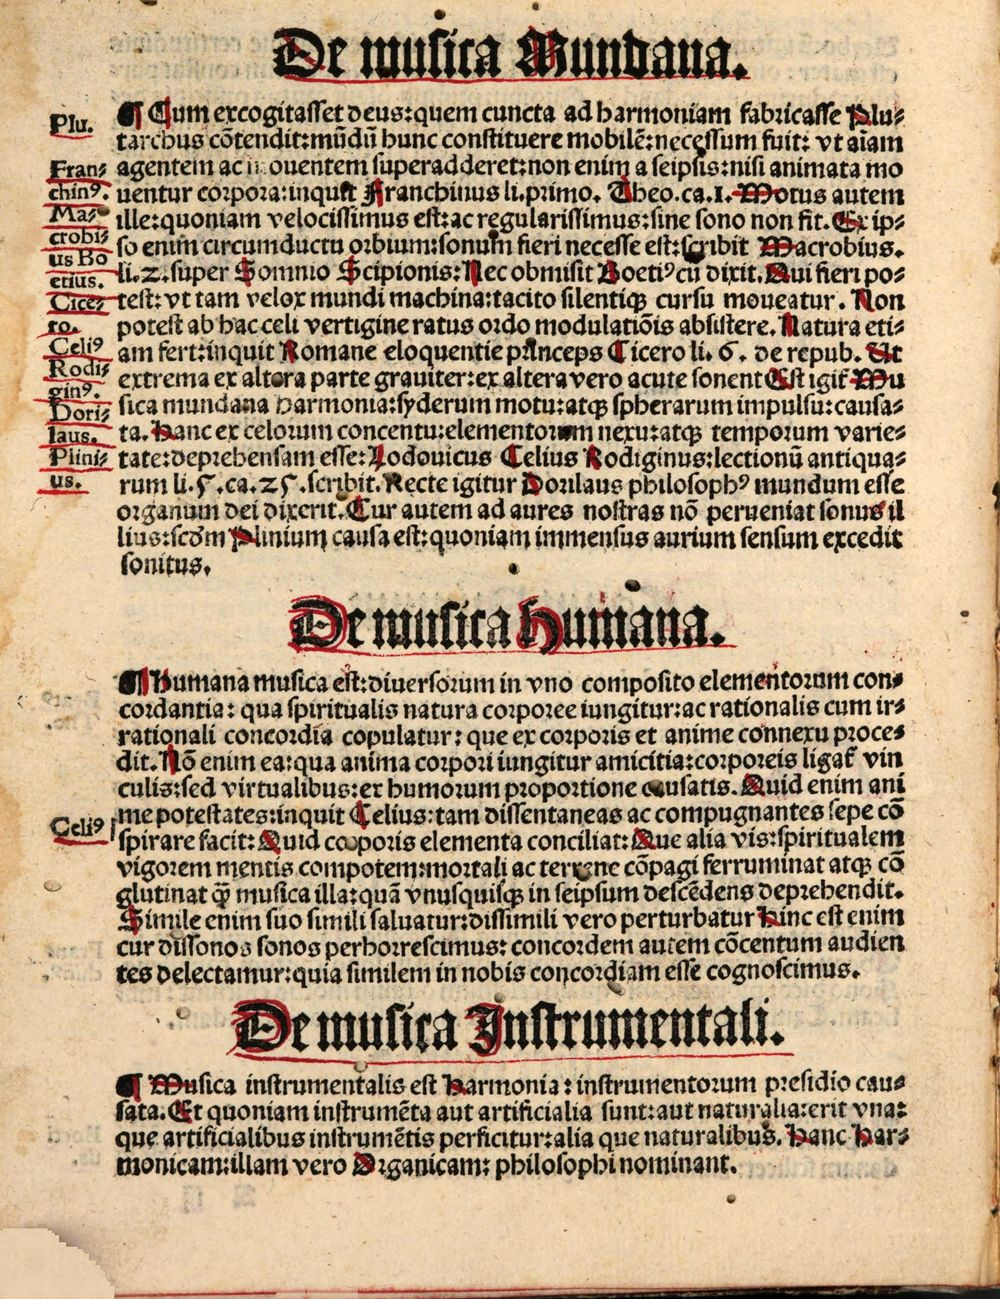 De musica Mundana.
¶ Cum excogitasset deus: quem cuncta ad harmoniam fabricasse Plu⸗
tarchus cōtendit: mūdū hunc constituere mobilē: necessum fuit: vt aīam
agentem ac mouentem superadderet: non enim a seipsis: nisi animata mo
uentur corpora: inquit Franchinus li. primo. Theo. ca. 1. Motus autem
ille: quoniam velocissimus est: ac regularissimus: sine sono non fit. Ex ip⸗
so enim circumductu orbium: sonum fieri necesse est: scribit Macrobius.
li. 2. super Somnio Scipionis: Nec obmisit Boetiꝰ cū dixit. Qui fieri po⸗
test: vt tam velox mundi machina: tacito silentiqꝫ cursu moueatur. Non
potest ab hac celi vertigine ratus ordo modulatiōis absistere. Natura eti⸗
am fert: inquit Romane eloquentie princeps Cicero li. 6. de repub. Ut
extrema ex altera parte grauiter: ex altera vero acute sonent Est igiť Mu
sica mundana harmonia: syderum motu: atqꝫ spherarum impulsu: causa⸗
ta. Hanc ex celorum concentu: elementorum nexu: atqꝫ temporum varie⸗
tate: deprehensam esse: Lodouicus Celius Rodiginus: lectionū antiqua⸗
rum li. 5. ca. 25. scribit. Recte igitur Dorilaus philosophꝰ mundum esse
organum dei dixerit. Cur autem ad aures nostras nō perueniat sonus il
lius: scḋm Plinium causa est: quoniam immensus aurium sensum excedit
sonitus.
Plu.
Fran⸗
chinꝰ.
Ma⸗
crobi⸗
us Bo
etius.
Cice⸗
ro.
Celiꝰ
Rodi⸗
ginꝰ.
Dori⸗
laus.
Plini⸗
us.
De musica Humana.
¶ Humana musica est: diuersorum in vno composito elementorum con⸗
cordantia: qua spiritualis natura corporee iungitur: ac rationalis cum ir⸗
rationali concordia copulatur: que ex corporis et anime connexu proce⸗
dit. Nō enim ea: qua anima corpori iungitur amicitia: corporeis ligať vin
culis: sed virtualibus: ex humorum proportione causatis. Quid enim ani
me potestates: inquit Celius: tam dissentaneas ac compugnantes sepe cō
spirare facit: Quid corporis elementa conciliat: Que alia vis: spiritualem
vigorem mentis compotem: mortali ac terrene cōpagi ferruminat atqꝫ cō
glutinat q̃ musica illa: quā vnusquisqꝫ in seipsum descēdens deprehendit.
Simile enim suo simili saluatur: dissimili vero perturbatur Hinc est enim
cur dissonos sonos perhorrescimus: concordem autem cōcentum audien
tes delectamur: quia similem in nobis concordiam esse cognoscimus.
Celiꝰ
De musica Instrumentali.
¶ Musica instrumentalis est harmonia: instrumentorum presidio cau⸗
sata. Et quoniam instrumēta aut artificialia sunt: aut naturalia: erit vna:
que artificialibus instrumētis perficitur: alia que naturalibus. Hanc Har⸗
monicam: illam vero Organicam: philosophi nominant.